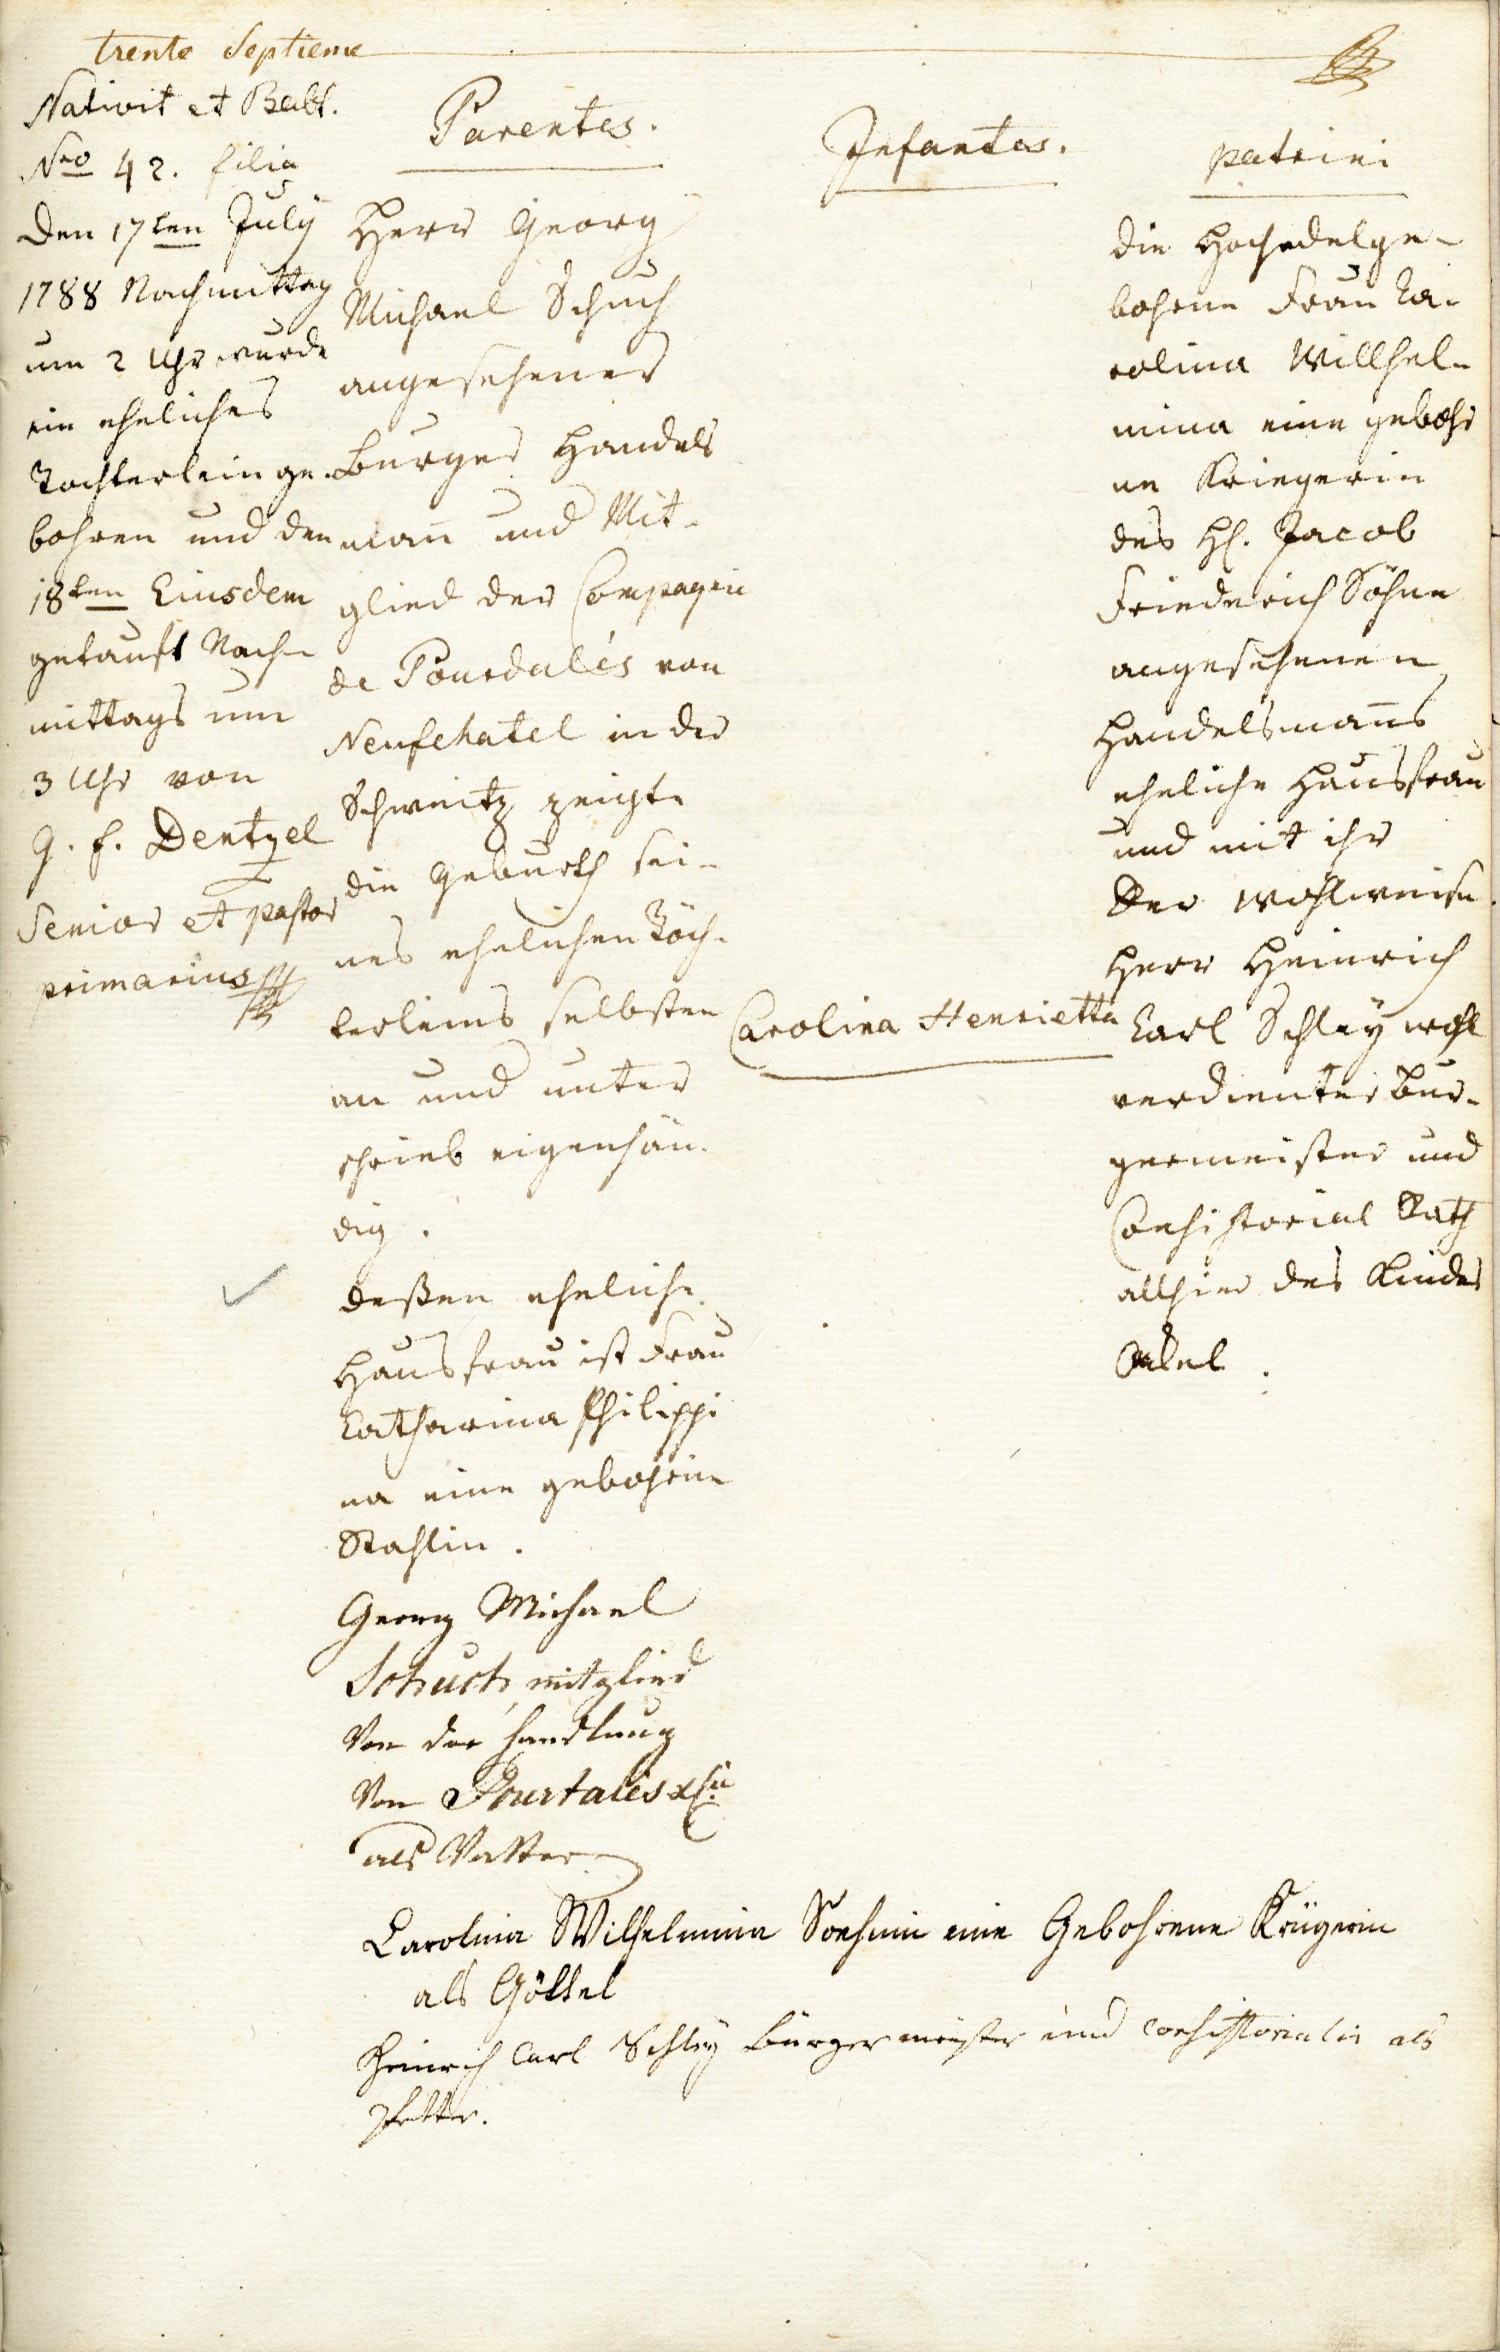 trente Septieme
Nativit et Babt.
Nro 42. filia
Den 17ten July
1788 Nachmittag
um 2 Uhr wurde
ein eheliches
Tochterlein ge-
bohren und den
18ten Eiusdem
getauft Nach-
mittags um
3 Uhr von
G. F. Dentzel
Senior et pastor
primarius
Parentes.
Herr Georg
Michael Schuch
angesehener
burger Handels
man̄ und Mit-
glied der Compagnie
de Pourdalés von
Neufchatel in der
Schweitz zeigte
die Geburth sei-
nes ehelichen Töch-
terleins selbsten
an und unter
schrieb eigenhän-
dig.
deßen eheliche
Hausfrau ist Frau
Catharina Philippi
na eine gebohrne
Stahlin.
Georg Michael
Schuch, mitglied
Von der handlung
Von Pourtales & Cie
als Vatter
Infantes.
Carolina Henrietta
patrini
die Hochedelge-
bohrne Frau Ca-
rolina Willhel-
mina eine gebohr
ne Kriegerin
des H. Jacob
Friederich Söhne
angesehenen
Handelsman̄s
eheliche Hausfrau
und mit ihr
Der Wohlweise
Herr Heinrich
Carl Schley wohl
verdienter Bur-
germeister und
Consistorial Rath
allhier des Kindes
Carolina Wilhelmina Soehnin eine Gebohrene Krügerin
als Göttel
Heinrich Carl Schley Bürgermeister und consistorialis als
Petter.